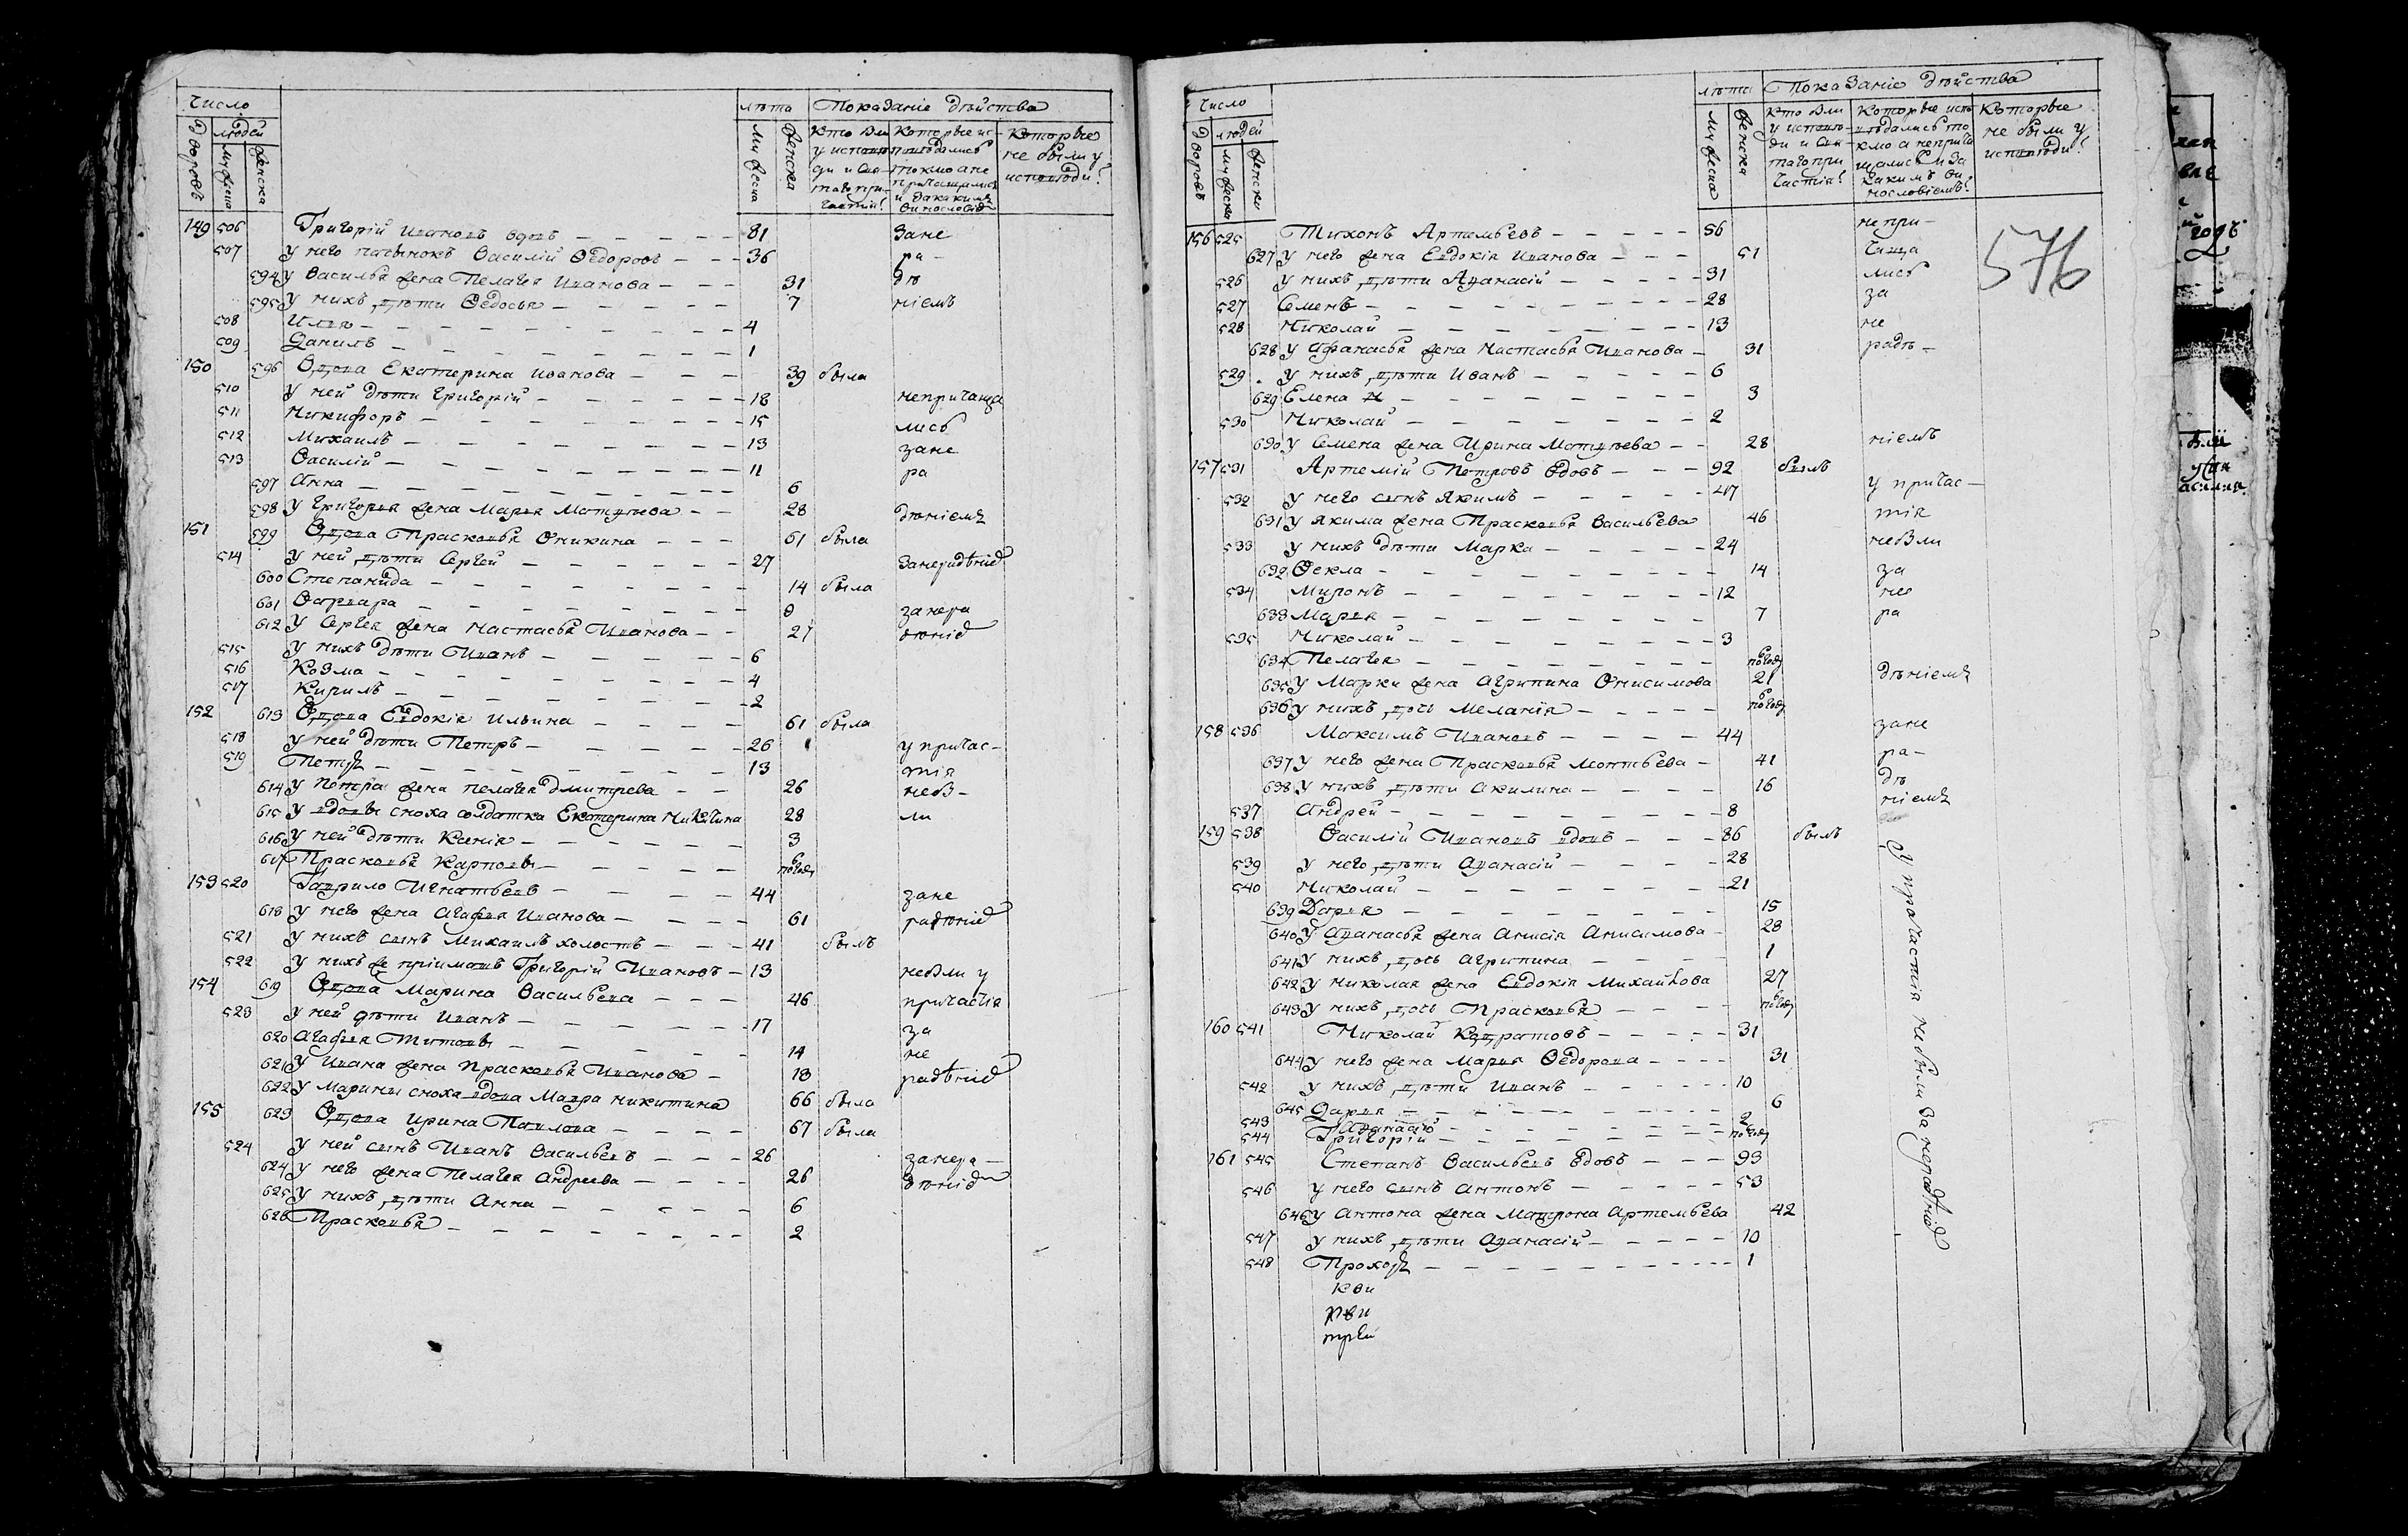 Число
лѣта Показаніе дѣйства
Дворовъ людей
мужеска женска
мужеска женска
Кто были у исповѣди и святаго причастія?
Которые исповѣдались токмо а не причащались и за какимъ виннословіемъ
Которые не были у исповѣди?
149 506 Григорій Ивановъ вдовъ 81 зане
507 у него пасынокъ Василій Ѳедоровъ 36 ра-
594 у Василья жена Пелагея Иванова 31 дѣ
595 у нихъ дѣти Ѳедосья 7 ніемъ
508 Илья 4
509 Данилъ 1
150 596 Вдова Екатерина Иванова 39 была
510 у ней дѣти Григорій 18 непричаща
511 Никифоръ 15 лись
512 Михаилъ 13 зане
513 Василій 11 ра
597 Анна 6
598 у Григорья жена Марья Матвѣева 28 дѣніемъ
151 599 Вдова Прасковья Аникина 61 была
514 у ней дѣти Сергей 27 занерадѣніе
600 Степанида 14 была
601 Варвара 8 занера
612 у Сергея жена Настасья Иванова 27 дѣніе
515 у нихъ дѣти Иванъ 6
516 Козма 4
517 Кирилъ 2
152 613 Вдова Евдокія Ильина 61 была
518 у ней дѣти Петръ 26 у причас-
519 Петръ 13 тія
614 у Петра жена Пелагея Дмитрева 26 небы-
615 у вдовы сноха солдатка Екатерина Никитина 28 ли
616 у ней дѣти Ксенія 3
617 Прасковья Карповы полгоду
153 520 Гаврило Игнатьевъ 44 зане
618 у него жена Агафья Иванова 61 радѣніе
521 у нихъ сынъ Михаилъ холостъ 41 былъ
522 у нихъ же пріиматъ Григорій Ивановъ 13 небыли у
154 619 Вдова Марина Васильева 46 причастія
523 у ней дѣти Иванъ 17 за
620 Агафья Титовы 14 не
621 у Ивана жена Прасковья Иванова 18 радѣніе
622 у Марины сноха вдова Мавра Никитина 66 была
155 623 Вдова Ирина Павлова 67 была
524 у ней сынъ Иванъ Васильевъ 26 занера-
624 у него жена Пелагея Андреева 26 дѣніе
625 у нихъ дѣти Анна 6
626 Прасковья 2
Число
лѣта Показаніе дѣйства
Дворовъ людей
мужеска женска
мужеска женска
Кто были у исповѣди и святаго причастія?
Которые исповѣдались токмо а непричащались и за какимъ виннословіемъ?
Которые не были у исповѣди?
576
156 525 Тихонъ Артемьевъ 56 непри-
627 у него жена Евдокія Иванова 51 чаща
526 у нихъ дѣти Аѳанасій 31 лись
527 Семенъ 28 за
528 Николай 13 не
628 у Афанасья жена Настасья Иванова 31 радѣ-
529 у нихъ дѣти Иванъ 6
629 Елена 3
530 Николай 2
630 у Семена жена Ирина Матвѣева 28 ніемъ
157 531 Артемій Петровъ вдовъ 92 былъ
532 у него сынъ Якимъ 47 у причас-
631 у Якима жена Прасковья Васильева 46 тія
533 у нихъ дѣти Марка 24 небыли
632 Ѳекла 14 за
534 Миронъ 12 не
633 Марья 7 ра
535 Николай 3
634 Пелагея полгоду
635 у Марки жена Агрипина Онисимова 21 дѣніемъ
636 у нихъ дочь Меланія полгоду
158 536 Максимъ Ивановъ 44 зане
637 у него жена Прасковья Монтьева 41 ра-
638 у нихъ дѣти Акилина 16 дѣ
537 Андрей 8 ніемъ
159 538 Василій Ивановъ вдовъ 86 былъ
539 у него дѣти Аѳанасій 28
540 Николай 21
639 Дарья 15
640 у Аѳанасья жена Анисія Анисимова 28
641 у нихъ дочь Агрипина 1
642 у Николая жена Евдокія Михайлова 27
643 у нихъ дочь Прасковья полгоду
160 541 Николай Кодратовъ 31
644 у него жена Марья Ѳедорова 31
542 у нихъ дѣти Иванъ 10
645 Дарья 6
543 Аѳанасій 2
544 Григорій полгоду
161 545 Степанъ Васильевъ вдовъ 93
546 у него сынъ Антонъ 53
646 у Антона жена Матрона Артемьева 42
547 у нихъ дѣти Аѳанасій 10
548 Прохоръ 1
у причастія небыли занерадѣніе